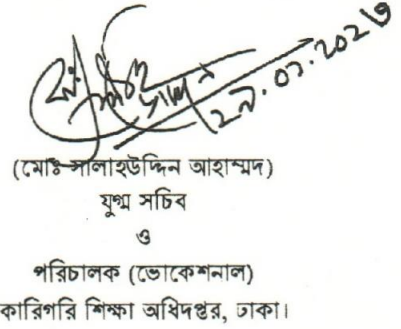 (মোঃ সালাহউদ্দিন আহাম্মদ)
যুগ্ম সচিব
ও
পরিচালক (ভোকেশনাল)
কারিগরি শিক্ষা অধিদপ্তর, ঢাকা।